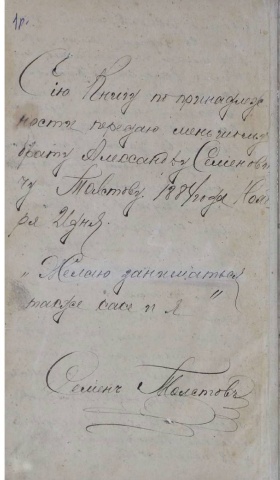 1р.
Сію Книгу по принадлеж
ности передаю меньшому
брату Александру Семенови
чу Толстову. 188 года Нояб
ря 21 дня.
„Желаю заниматься
также какъ и я"
Семенъ Толстовъ